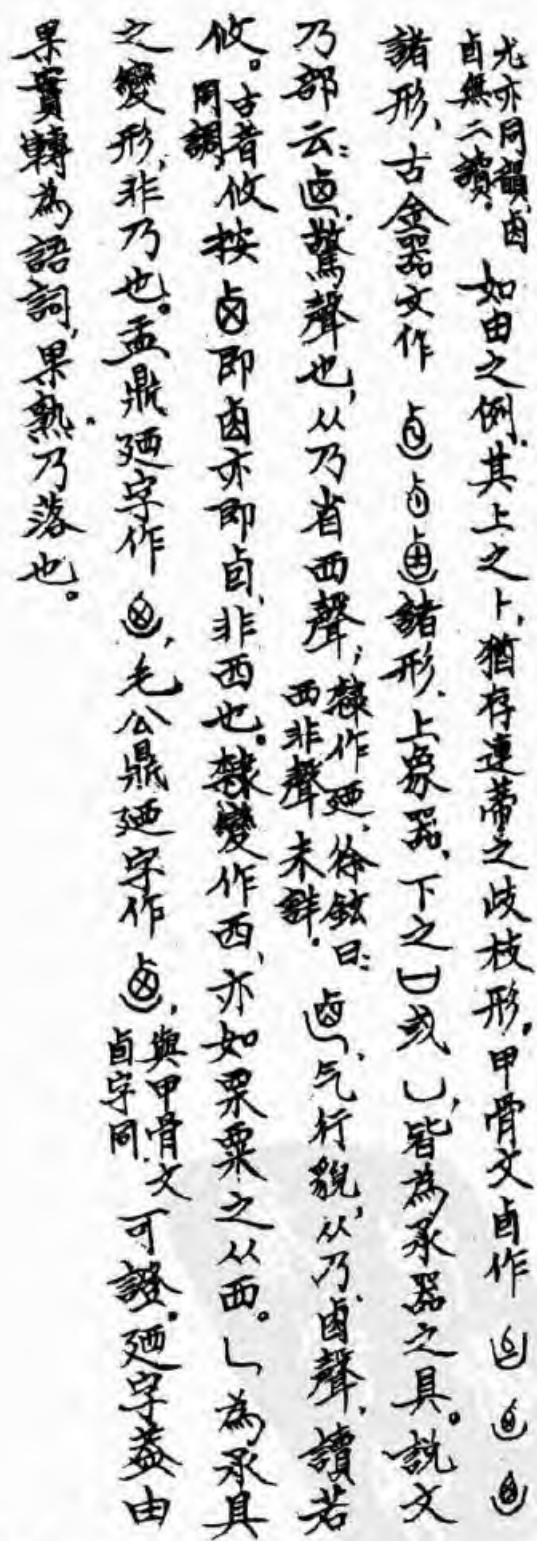 尤亦同韻,卣
卣無二讀。如由之例,其上之卜,猶存連蒂之歧枝形。甲骨文卣作
諸形,古金器文作諸形,上象器,下之凵或乚,皆為承器之具。說文
乃部云:𠧟,驚聲也,从乃省西聲;隸作廼,徐鉉曰:西非聲,未詳。𠧪,气行貌,从乃𠧪聲,讀若
攸。古音攸同調,按即卣亦即卣,非西也。隸變作西,亦如栗粟之从西。乚為承具
之變形,非乃也。盂鼎廼字作,毛公鼎廼字作,與甲骨文卣字同,可證。廼字蓋由
果實轉為語詞,果熟乃落也。